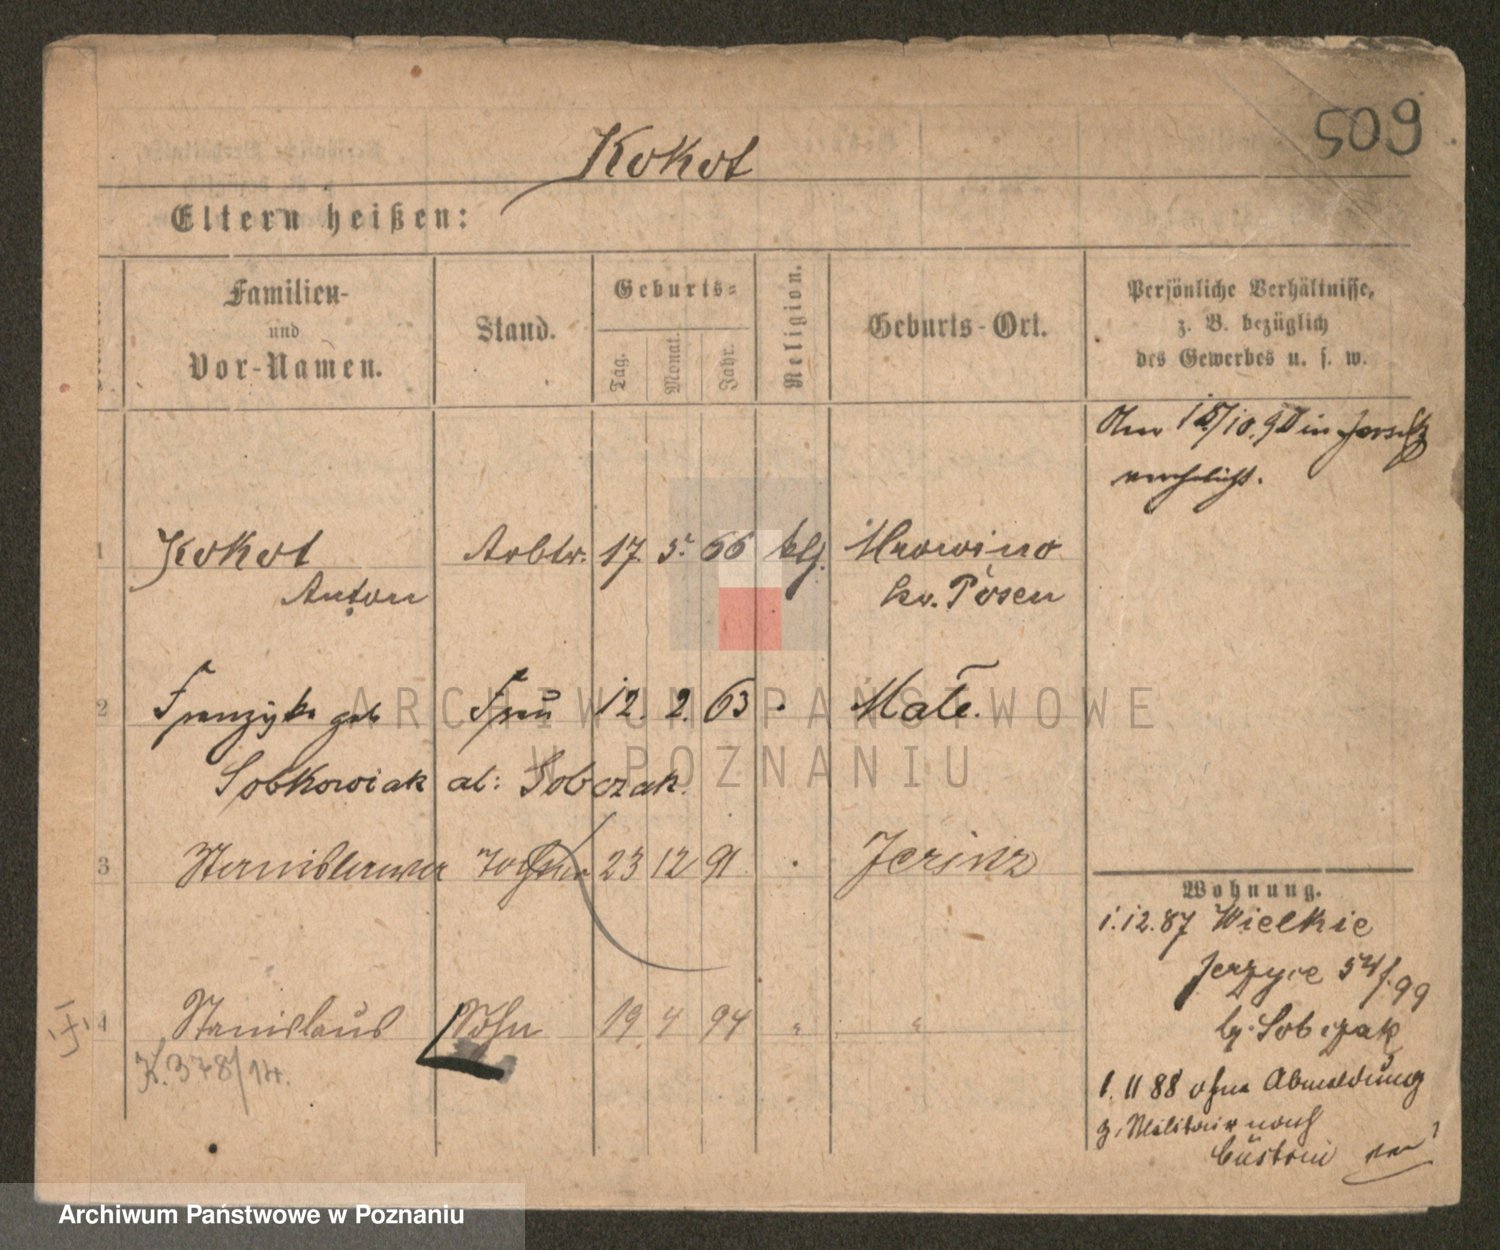 509
Kokot
Eltern heißen:
Familien-
und
Vor-Namen.
Stand.
Geburts-
Tag.
Monat.
Jahr.
Religion.
Geburts-Ort.
Persönliche Verhältnisse,
z. B. bezüglich
des Gewerbes u. s. w.
Am 15/10.90 in Jersitz
verehelicht.
1 Kokot Arbtr. 17. 5. 66 ktl. Mrowino
Anton Kr. Posen
2 Franziska geb Frau 12. 2. 63 Mate.
Sobkowiak al: Sobczak.
3 Stanislawa Tochter 23 12 91 Jerzitz
4 Stanislaus Sohn 19 4 94 " "
K. 378/14.
Wohnung.
1.12.87 Wielkie
Jerzyce 54f. 99
by. Sobczak
1. 11 88 ohne Abmeldung
z. Militair nach
Cüstrin
ARCHIWUM PAŃSTWOWE
W POZNANIU
Archiwum Państwowe w Poznaniu